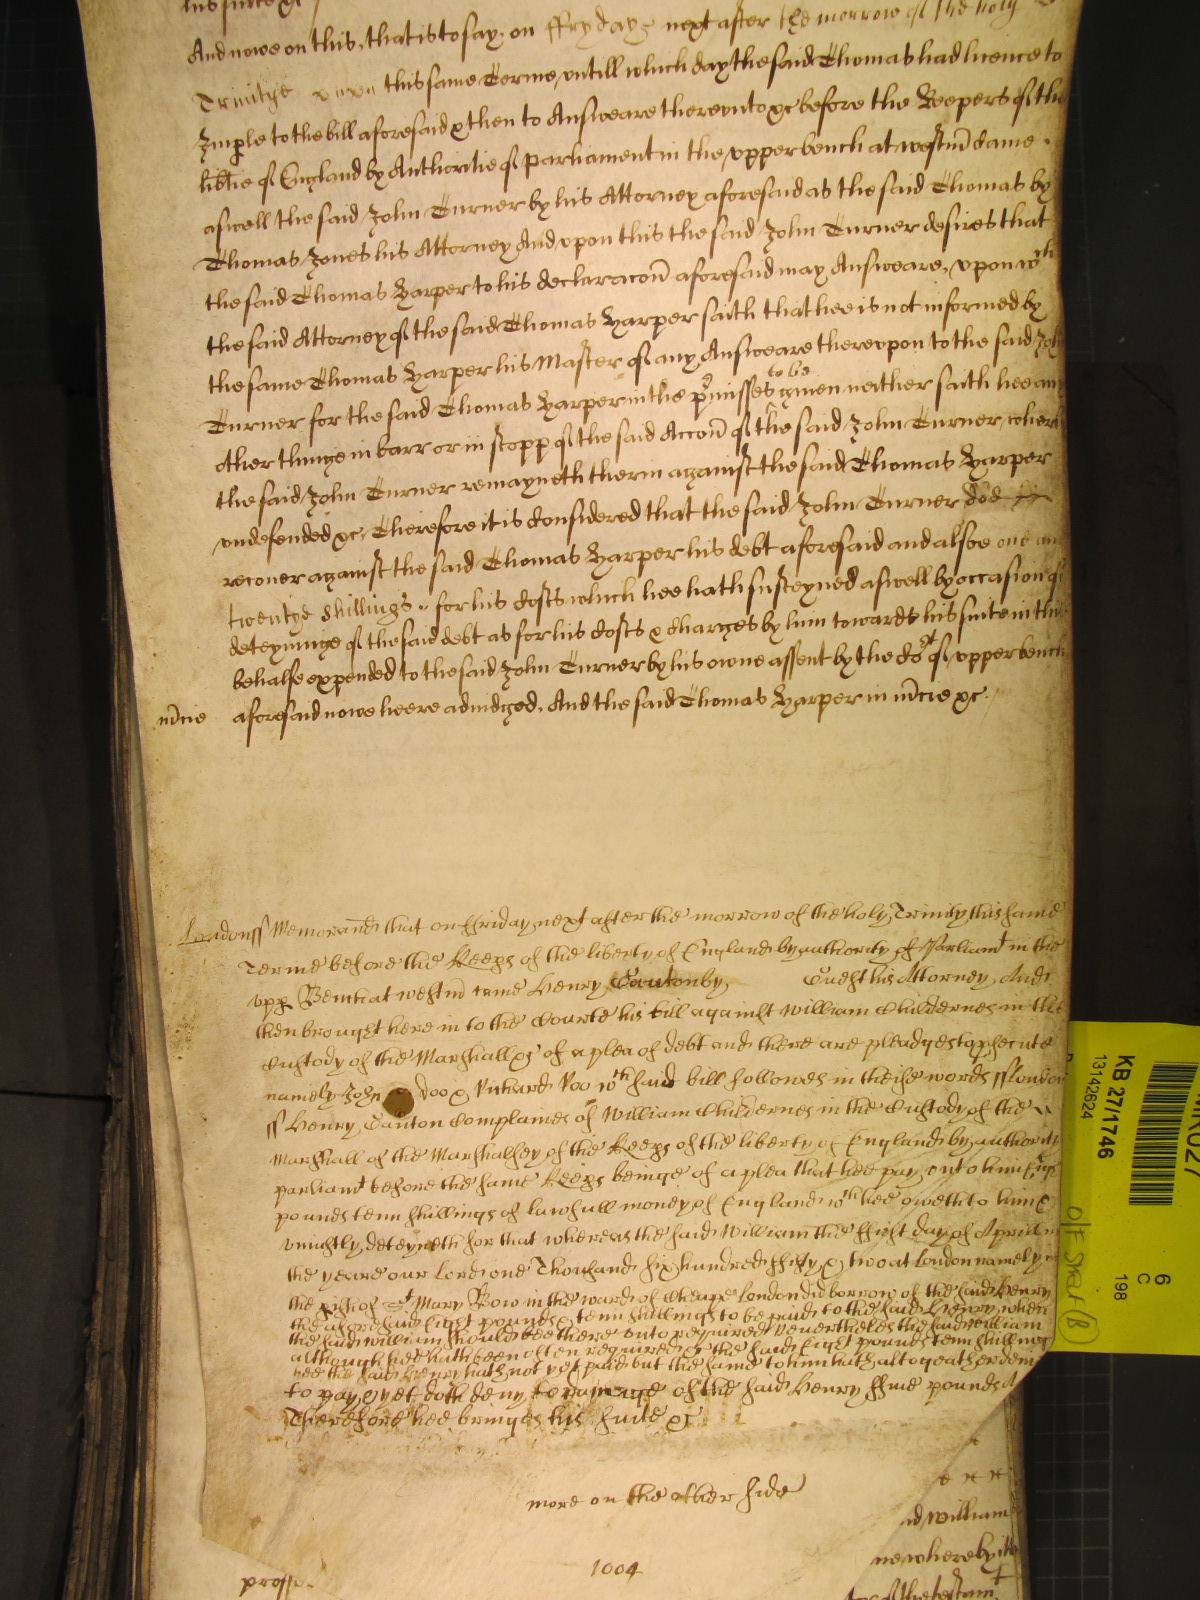 his suite &c
And nowe on this, that is to say, on ffryday next after the morrow of the holy
Trinitye this same Terme, untill which day the said Thomas had licence to
Imple to the bill aforesaid & then to Answeare thereunto &c before the Keepers of the
lib̃tie of England by Authoritie of parliament in the upper bench at westm̃ came
aswell the said John Turner by his Attorney aforesaid as the said Thomas by
Thomas Jones his Attorney And upon this the said John Turner desires that
the said Thomas Harper to his declaracoñ aforesaid may Answeare, upon wch
the said Attorney of the said Thomas Harper saith that hee is not informed by
the same Thomas Harper his Master of any Answeare thereupon to the said Joh
Turner for the said Thomas Harper in the p̃misses to be given neither saith hee any
other thinge in barr or in stopp of the said Accoñ of the said John Turner, where
the said John Turner remayneth therin against the said Thomas Harper
undefended &c, Therefore it is Considered that the said John Turner
recover against the said Thomas Harper his debt aforesaid and alsoe one
twentye shillings for his Costs which hee hath susteyned aswell by occasion of
deteyninge of the said debt as for his Costs & Charges by him towards his suite in this
behalfe expended to the said John Turner by his owne assent by the Cot of upper bench
m̃cie aforesaid nowe heere adiudged, And the said Thomas Harper in m̃cie &c.
London ss Memorand that on ffriday next after the morrow of the holy Trinity this same
Terme before the Keeps of the liberty of England by authority of Parliamt in the
upp Bench at westm̃ came Henry Cantonby, Guest his Attorney, And
then brought here in to the Courte his bill against William Childernes in the
Custody of the Marshall &c of a plea of debt and there are pleadges to p̱secute
namely John Doo & Richard Roo wch said bill followes in these words ss London
ss Henry Canton Complaines of William Childernes in the Custody of the
Marshall of the Marshalsey of the Keeps of the liberty of England by authority
parliamt before the same Keeps beinge of a plea that hee pay unto him Eight
pounds tenn shillings of lawfull money of England wch hee oweth to him &
uniustly deteyneth for that whereas the said William the ffirst day of Aprill in
the yeare our Lord one Thousand six hundred ffifty & two at London namely in
the pish of St Mary Bow in the ward of Cheape London did borrow of the said Henry
the aforesaid Eight pounds & tenn shillings to be paid to the said Henry when
the said William should bee there unto required Neverthelesse the said William
although hee hath been often required &c the said Eight pounds tenn shillings
hee the said Henry hath not yet paid but the same to him hath altogeather denied
to pay, & yet doth deny to damage of the said Henry ffive pounds
Therefore hee bringes his suite &c
more on the other side
1004
prosse.
id William
ne whereby it
KB 27/1746
13142624
6
C
198